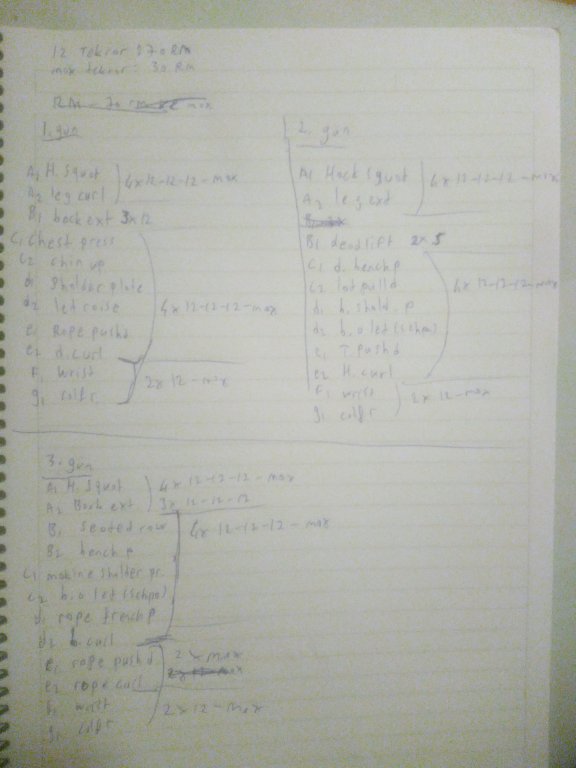 12 Tekrar : 70 RM
max tekrar : 30 RM
1. gün
A1 H. Squat
A2 leg curl
4x12-12-12-max
B1 back ext 3x12
C1 Chest press
C2 chin up
d1 Sholder plate
d2 let raise
e1 Rope pushd
e2 d. curl
4x12-12-12-max
F1 wrist
g1 calfr
2x12-max
2. gün
A1 Hack Squat
A2 leg ext
4x12-12-12-max
B1 deadlift 2x5
C1 d. bench p
C2 lat pulld
d1 h. shold. p
d2 b.o let (schpa)
e1 T. pushd
e2 H. curl
4x12-12-12-max
F1 wrist
g1 calfr
2x12-max
3. gün
A1 H. Squat
4x12-12-12-max
A2 Back ext
3x12-12-12
B1 Seated row
B2 bench p
4x12-12-12-max
C1 makine sholder pr.
C2 b.o let (schpa)
d1 rope french p
d2 b. curl
e1 rope pushd
e2 rope curl
2x max
F1 wrist
g1 calfr
2x12-max